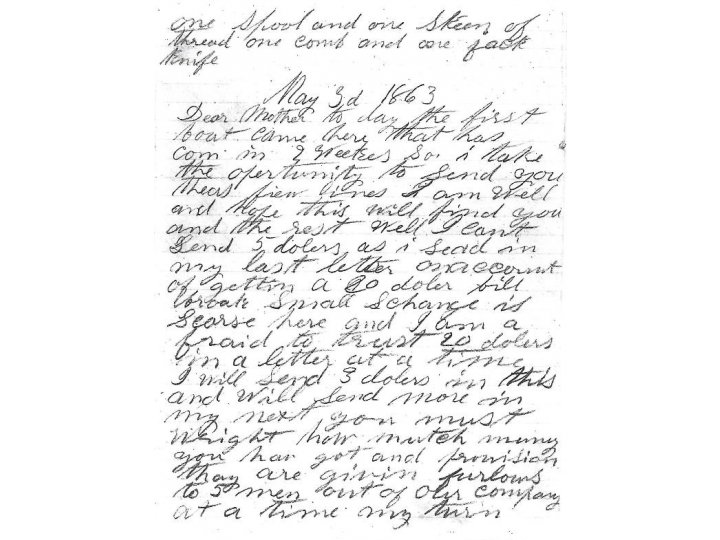 one spool and one skeen of
thread one comb and one jack
knife
May 3d 1863
Dear Mother to day the first
boat came here that has
com in 2 Weekes So i take
the opertunity to send you
thears fiew lines I am well
and hope this will find you
and the rest well I cant
send 5 dolers as i sead in
my last letter on account
of gettin a 20 doler bill
broak small schange is
scarse here and I am a
fraid to trust 20 dolers
in a letter at a time
I will send 3 dolers in this
and will send more in
my next you must
wright how mutch muny
you hav got and provision
thay are givin furlows
to 5 men out of our company
at a time my turn